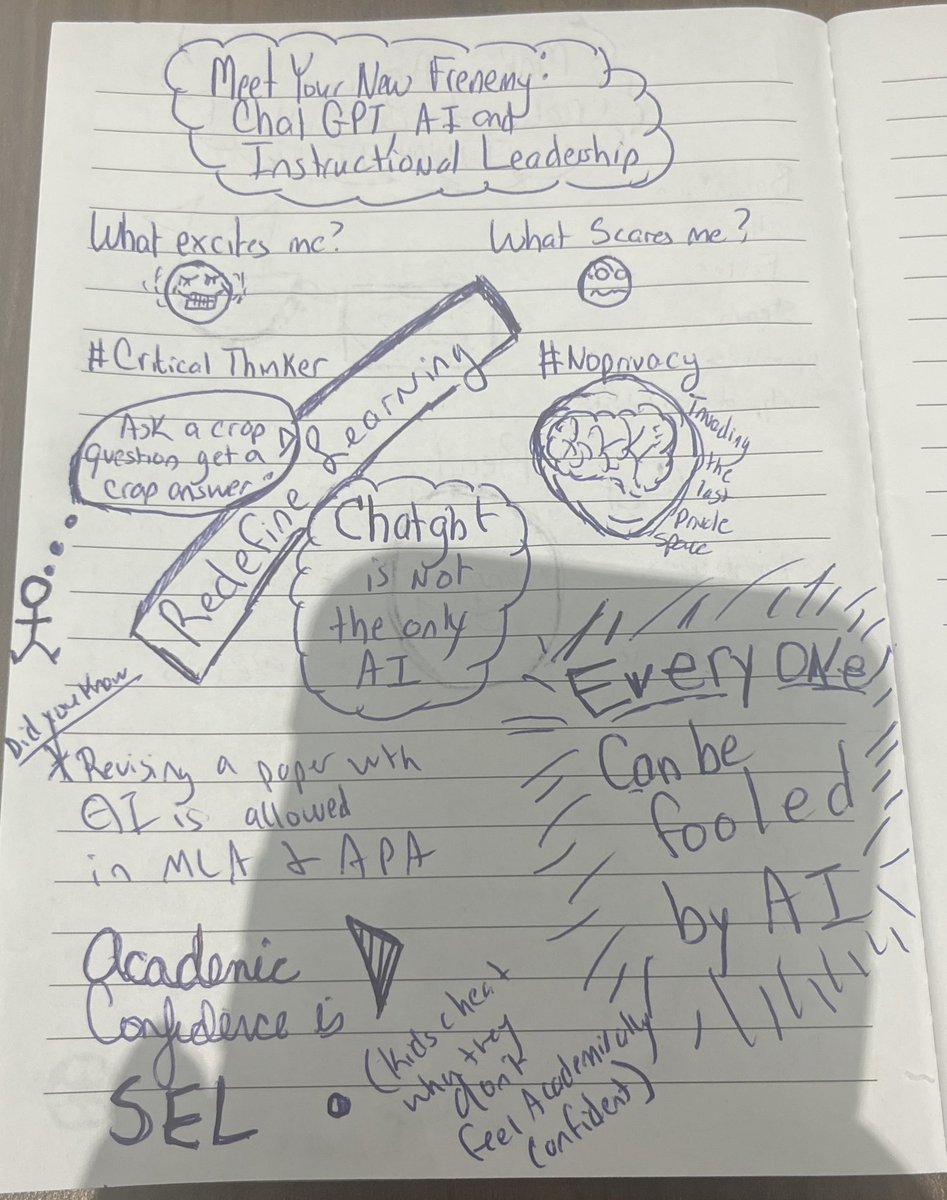 Meet Your New Frenemy:
Chat GPT, AI and
Instructional Leadership
What excites me?
What Scares me?
#Critical Thinker
#Noprivacy
Ask a crap
question get a
crap answer
Redefine Learning
Invading
the
last
Private
space
Chatgbt
is Not
the only
AI
Every ONe
Can be
fooled
by AI
Did you know
*Revising a paper with
AI is allowed
in MLA & APA
Academic
Confidence is
SEL
(Kids cheat
why they
don't
feel Academically
confident)